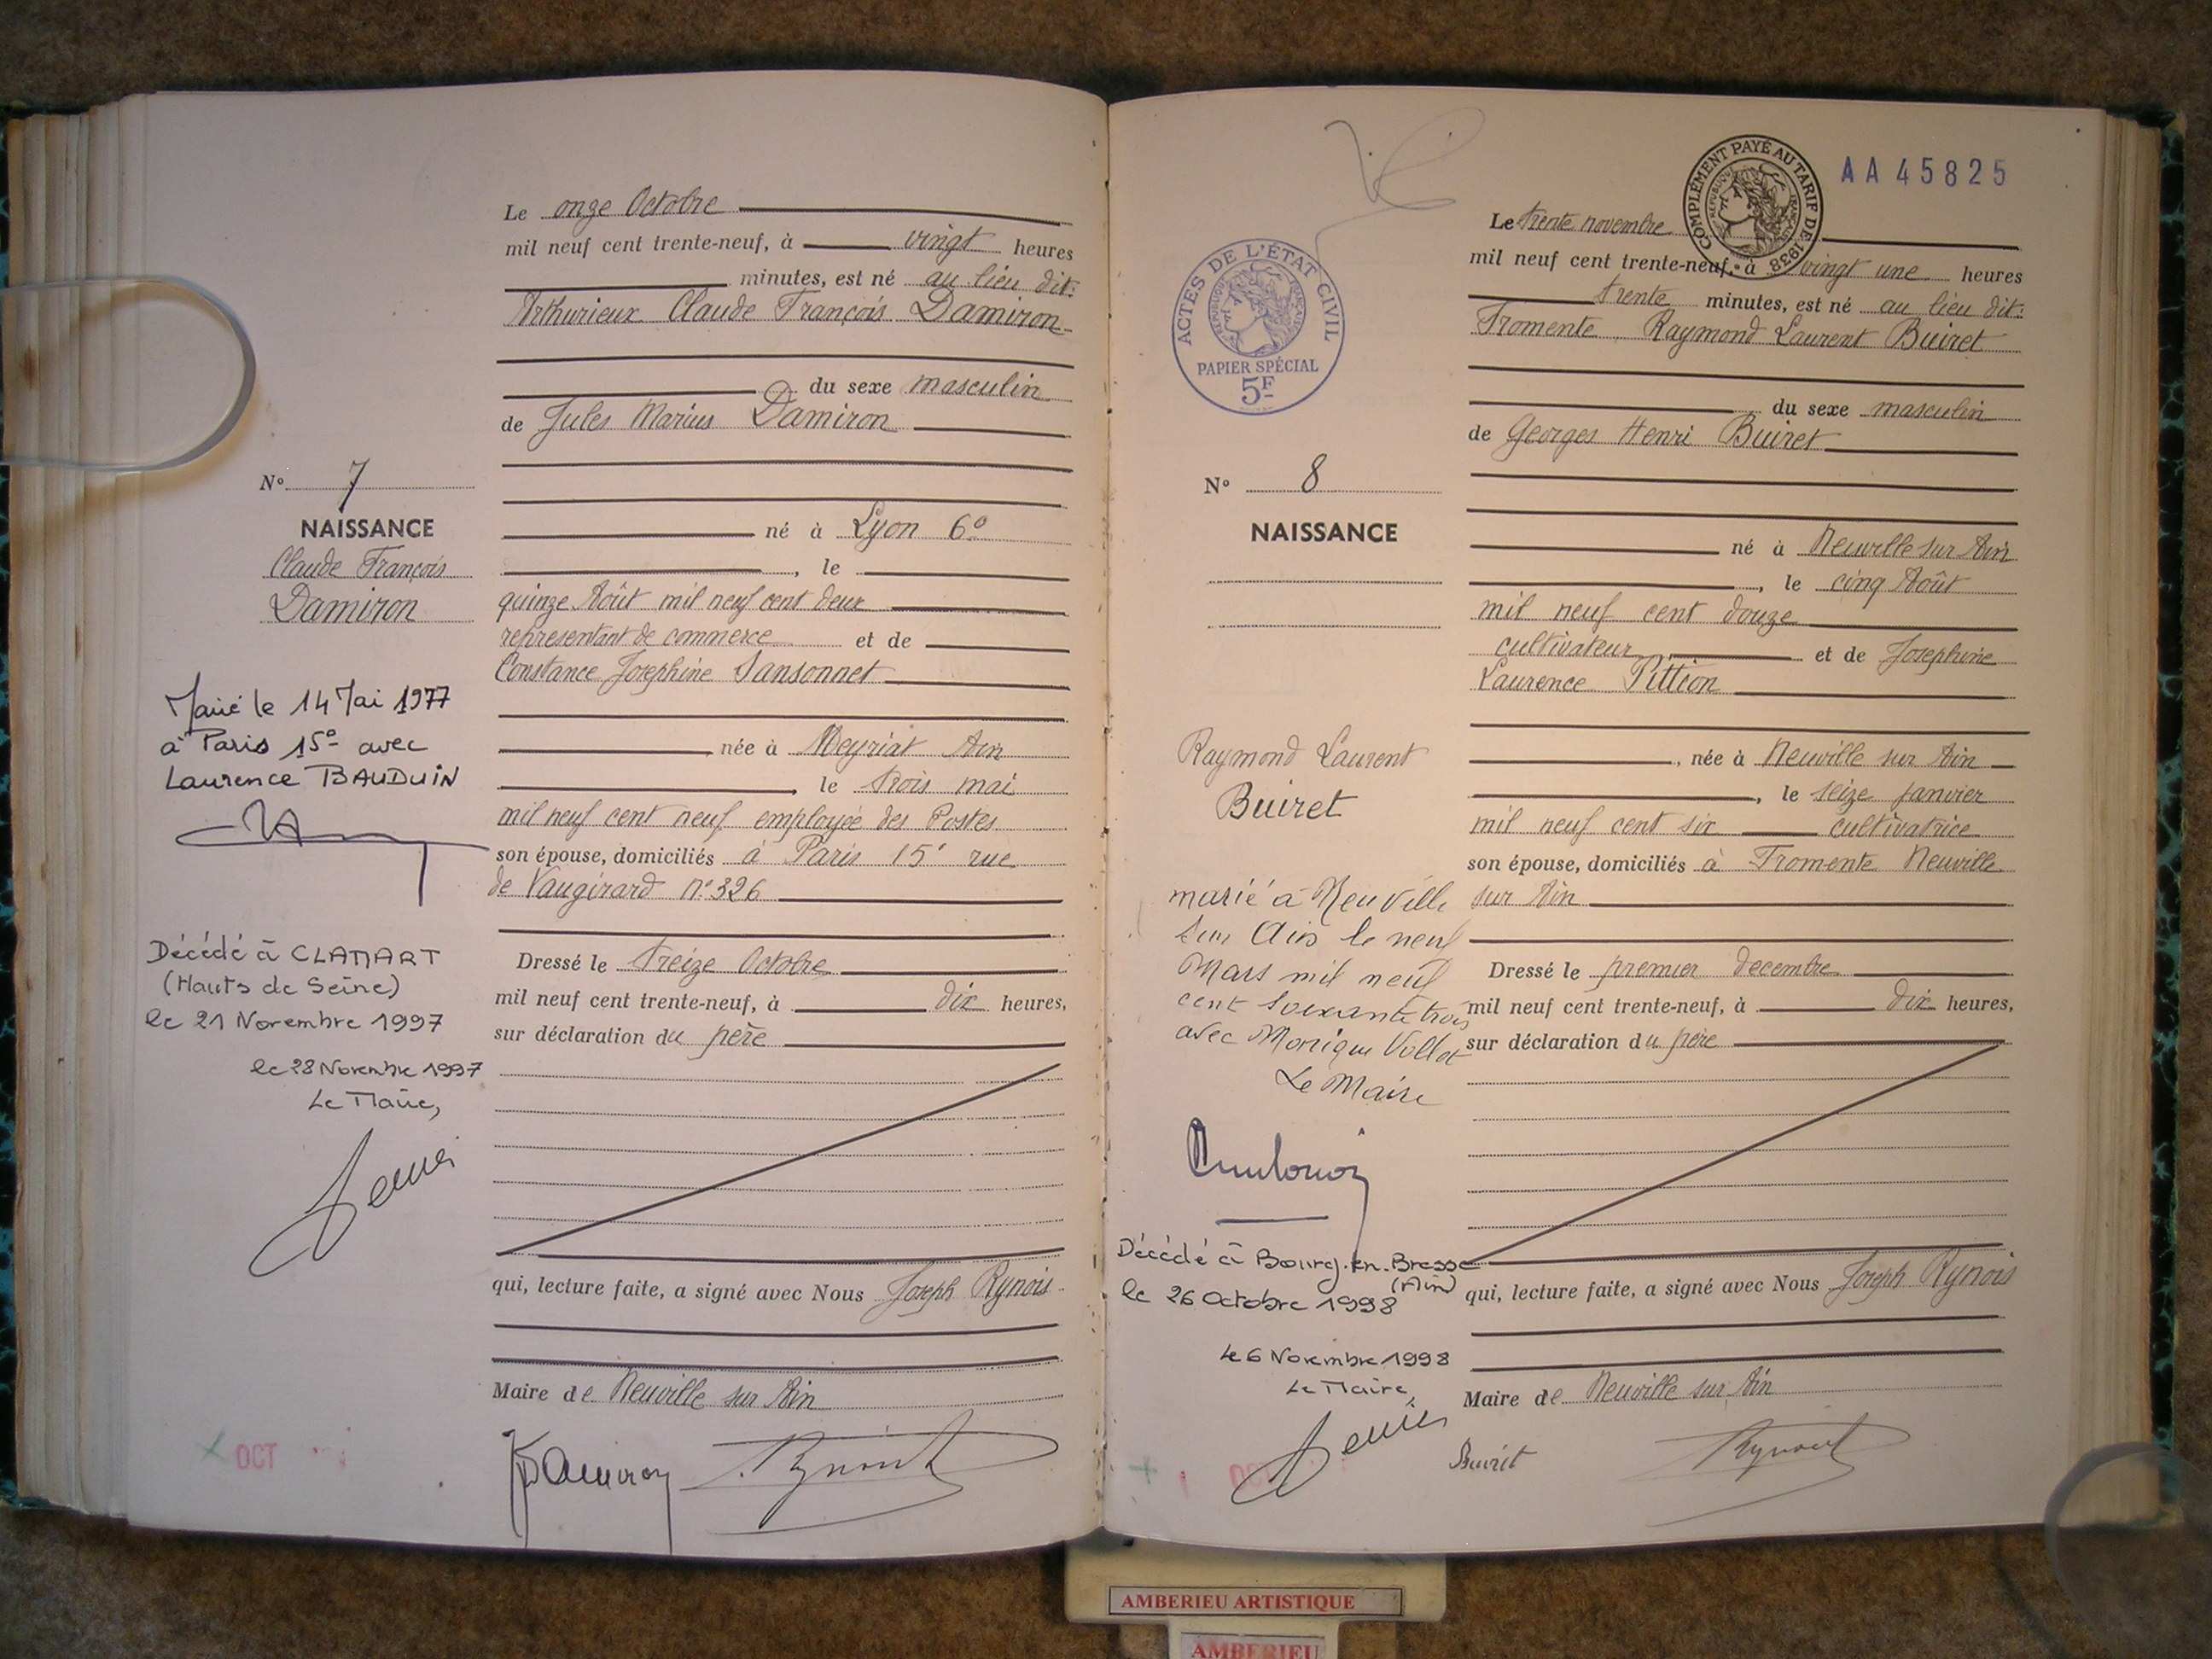 Le onze Octobre
mil neuf cent trente-neuf, à vingt heures
minutes, est né au lieu dit:
Arthurieux Claude François Damiron
du sexe masculin
de Jules Marius Damiron
N° 7
NAISSANCE
Claude François
Damiron
né à Lyon 6e
, le
quinze Août mil neuf cent deux
représentant de commerce et de
Constance Josephine Sansonnet
née à Meyriat Ain
le trois mai
mil neuf cent neuf employée des Postes
son épouse, domiciliés à Paris 15e rue
de Vaugirard n° 326
Marié le 14 Mai 1977
à Paris 15e avec
Laurence BAUDUIN
Décédé à CLAMART
(Hauts de Seine)
le 21 Novembre 1997
le 28 Novembre 1997
Le Maire,
Dressé le treize Octobre
mil neuf cent trente-neuf, à dix heures,
sur déclaration du père
qui, lecture faite, a signé avec Nous Joseph Rynois
Maire de Neuville sur Ain
Damiron
OCT
AA45825
COMPLÉMENT PAYÉ AU TARIF DE 1938
RÉPUBLIQUE FRANÇAISE
ACTES DE L'ÉTAT CIVIL
RÉPUBLIQUE FRANÇAISE
PAPIER SPÉCIAL
5F
Le trente novembre
mil neuf cent trente-neuf, à vingt une heures
trente minutes, est né au lieu dit:
Fromente Raymond Laurent Buiret
du sexe masculin
de Georges Henri Buiret
N° 8
NAISSANCE
né à Neuville sur Ain
, le cinq Août
mil neuf cent douze
cultivateur et de Josephine
Laurence Pittion
née à Neuville sur Ain
, le seize janvier
mil neuf cent six cultivatrice
son épouse, domiciliés à Fromente Neuville
sur Ain
Raymond Laurent
Buiret
marié à Neuville
sur Ain le neuf
Mars mil neuf
cent soixante trois
avec Monique Vollet
Le Maire
Décédé à Bourg-en-Bresse
(Ain)
le 26 Octobre 1998
Le 6 Novembre 1998
Le Maire,
Dressé le premier decembre
mil neuf cent trente-neuf, à dix heures,
sur déclaration du père
qui, lecture faite, a signé avec Nous Joseph Rynois
Maire de Neuville sur Ain
Buiret
AMBERIEU ARTISTIQUE
AMBERIEU